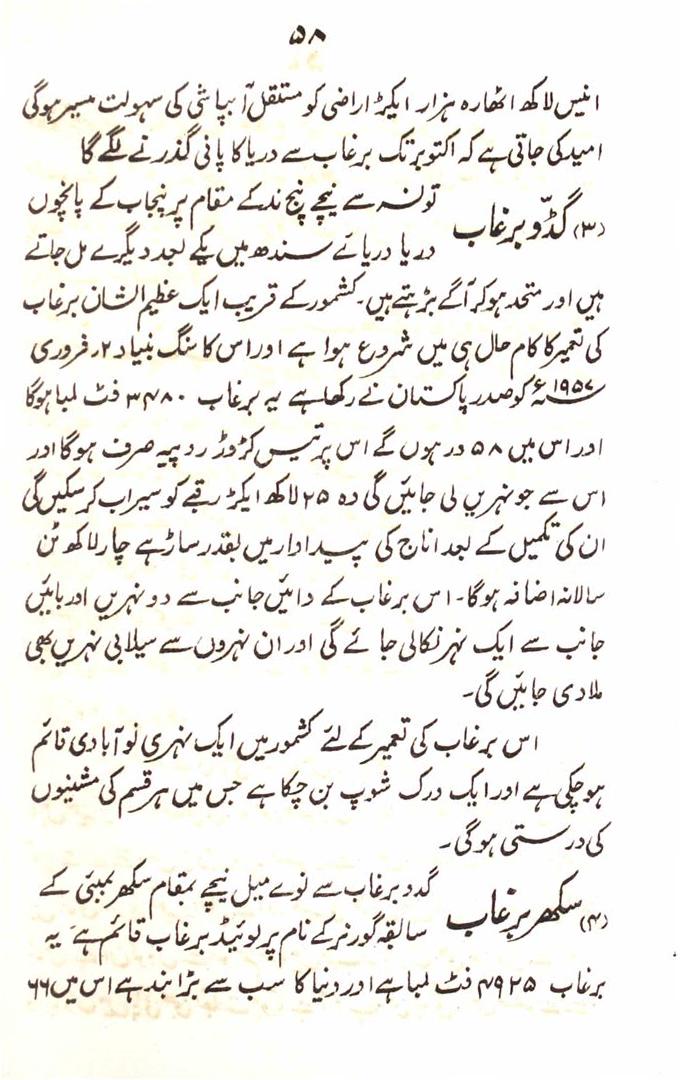 ۵۸
انیس لاکھ اٹھارہ ہزار ایکڑ اراضی کو مستقل آبپاشی کی سہولت میسر ہوگی
امید کی جاتی ہے کہ اکتوبر تک برغاب سے دریا کا پانی گذرنے لگے گا
(۳) گڈّو برغاب
تونسہ سے نیچے پنج ند کے مقام پر پنجاب کے پانچوں
دریا دریائے سندھ میں یکے بعد دیگرے مل جاتے
ہیں اور متحد ہو کر آگے بڑہتے ہیں۔ کشمور کے قریب ایک عظیم الشان برغاب
کی تعمیر کا کام حال ہی میں شروع ہوا ہے اور اس کا سنگ بنیاد ۲ر فروری
۱۹۵۷ء کو صدر پاکستان نے رکھا ہے یہ برغاب ۳۴۸۰ فٹ لمبا ہوگا
اور اس میں ۵۸ در ہوں گے اس پر تیس کڑوڑ روپیہ صرف ہو گا اور
اس سے جو نہریں لی جائیں گی وہ ۲۵ لاکھ ایکڑ رقبے کو سیراب کر سکیں گی
ان کی تکمیل کے بعد اناج کی پیداوار میں بقدر ساڑہے چار لاکھ ٹن
سالانہ اضافہ ہوگا۔ اس برغاب کے دائیں جانب سے دو نہریں اور بائیں
جانب سے ایک نہر نکالی جائے گی اور ان نہروں سے سیلابی نہریں بھی
ملا دی جائیں گی۔
اس برغاب کی تعمیر کے لئے کشمور میں ایک نہری نو آبادی قائم
ہوچکی ہے اور ایک ورک شوپ بن چکا ہے جس میں ہر قسم کی مشینوں
کی درستی ہوگی۔
(۴) سکھر برغاب
گدو برغاب سے نوے میل نیچے بمقام سکھر بمبئی کے
سابقہ گورنر کے نام پر لوئیڈ برغاب قائم ہے یہ
برغاب ۴۹۲۵ فٹ لمبا ہے اور دنیا کا سب سے بڑا بند ہے اس میں ۶۶